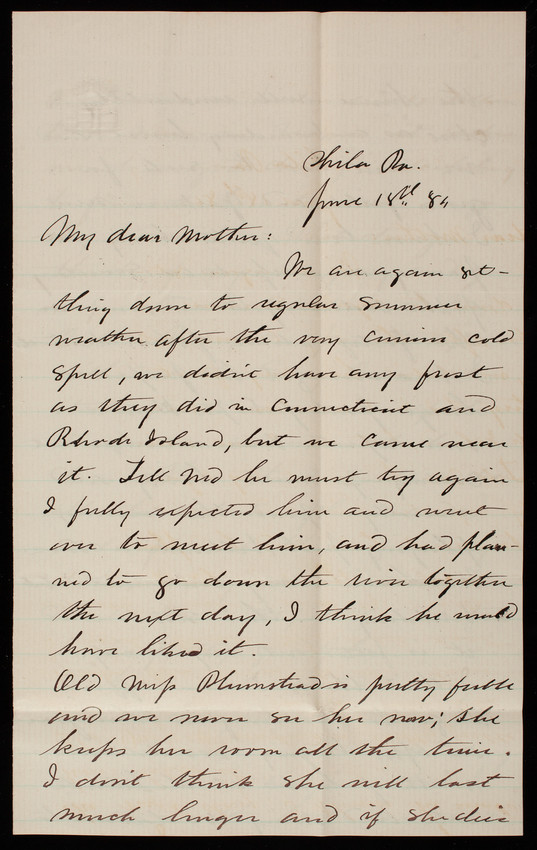 Phila Pa.
June 18th 84
My dear Mother:
We are again set-
tling down to regular summer
weather after the very curious cold
spell, we didn't have any frost
as they did in Connecticut and
Rhode Island, but we came near
it. Tell Ned he must try again
I fully expected him and went
over to meet him, and had plan-
ned to go down the river together
the next day, I think he would
have liked it.
Old Miss Plumstead is pretty feeble
and we never see her now; she
keeps her room all the time.
I don't think she will last
much longer and if she dies